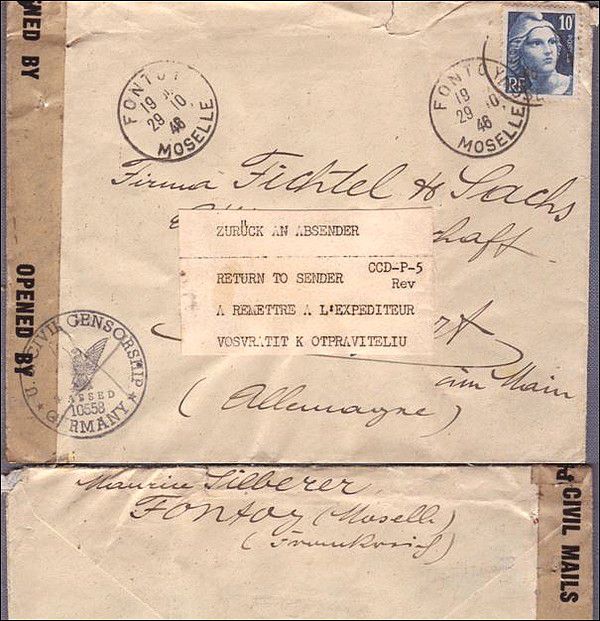 OPENED BY
OPENED BY
10
RF
FONTOY
19
29 10
46
MOSELLE
FONTOY
19
29 10.
46
MOSELLE
Firma Fichtel & Sachs
schaft
ZURÜCK AN ABSENDER
RETURN TO SENDER CCD-P-5
Rev
A REMETTRE A L'EXPEDITEUR
VOSVRATIT K OTPRAVITELIU
rt
am Main
(Allemagne)
U.S. CIVIL CENSORSHIP
PASSED
10558
GERMANY
Maurice Silberer
Fontoy (Moselle)
(Frankreich)
CIVIL MAILS